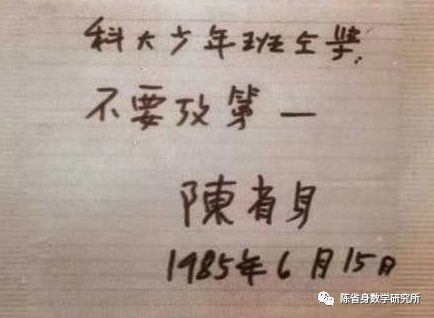 科大少年班仝学,
不要攷第一
陳省身
1985年6月15日
陈省身数学研究所